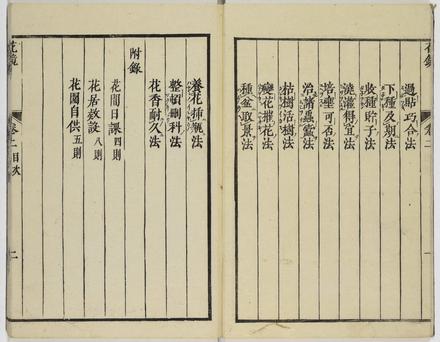 花鏡 卷二
過貼巧合法
下種及期法
收種貯子法
澆灌得宜法
培壅可否法
治諸蟲蠹法
枯樹活樹法
變花催花法
種盆取景法
養花插瓶法
整頓刪科法
花香耐久法
附錄
花間日課四則
花居款設八則
花園自供五則
花鏡 卷二目次 二